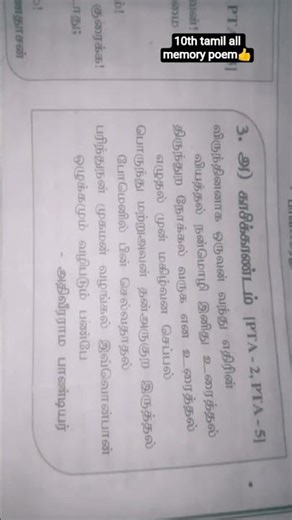 10th tamil all
memory poem👍
PTA
குரைக்க!
3. அ) காசிக்காண்டம் [PTA - 2, PTA - 5]
விருந்தினனாக ஒருவன் வந்து எதிரின்
வியத்தல் நன்மொழி இனிது உரைத்தல்
திருந்துற நோக்கல் வருக என உரைத்தல்
எழுதல் முன் மகிழ்வன செப்பல்
பொருந்து மற்றுஅவன் தன்அருகுற இருத்தல்
போமெனில் பின் செல்வதாதல்
பரிந்துநன் முகமன் வழங்கல் இவ்வொன்பான்
ஒழுக்கமும் வழிபடும் பண்பே
- அதிவீரராம பாண்டியர்